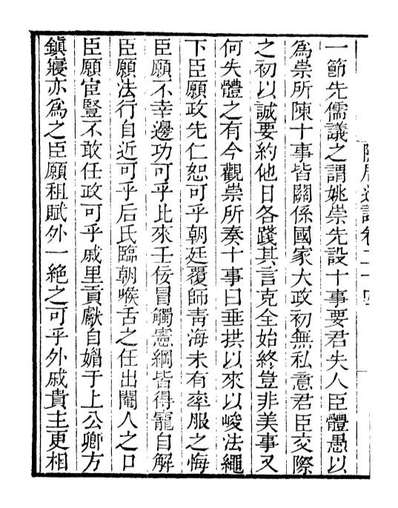 隱居通議卷二十四
一節先儒議之謂姚崇先設十事要君失人臣體愚以
為崇所陳十事皆關係國家大政初無私意君臣交際
之初以誠要約他日各踐其言克全始終豈非美事又
何失體之有今觀崇所奏十事曰垂拱以來以峻法繩
下臣願政先仁恕可乎朝廷覆師青海未有牽服之悔
臣願不幸邊功可乎比來壬佞冒觸憲綱皆得寵自解
臣願法行自近可乎后氏臨朝喉舌之任出閹人之口
臣願宦豎不敢任政可乎戚里貢獻自媚于上公卿方
鎮寖亦為之臣願租賦外一絕之可乎外戚貴主更相